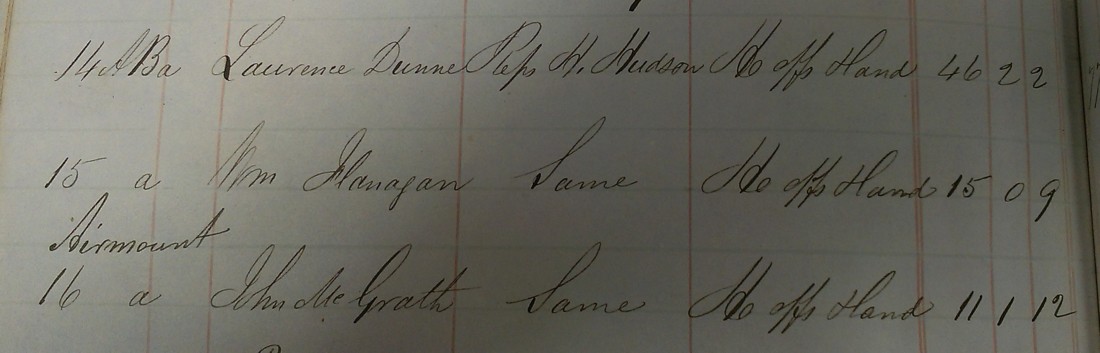 14 ABa Laurence Dunne Reps H. Hudson Ho offs Land 46 2 2
15 a Wm Flanagan Same Ho offs Land 15 0 9
Airmount
16 a John McGrath Same Ho offs Land 11 1 12